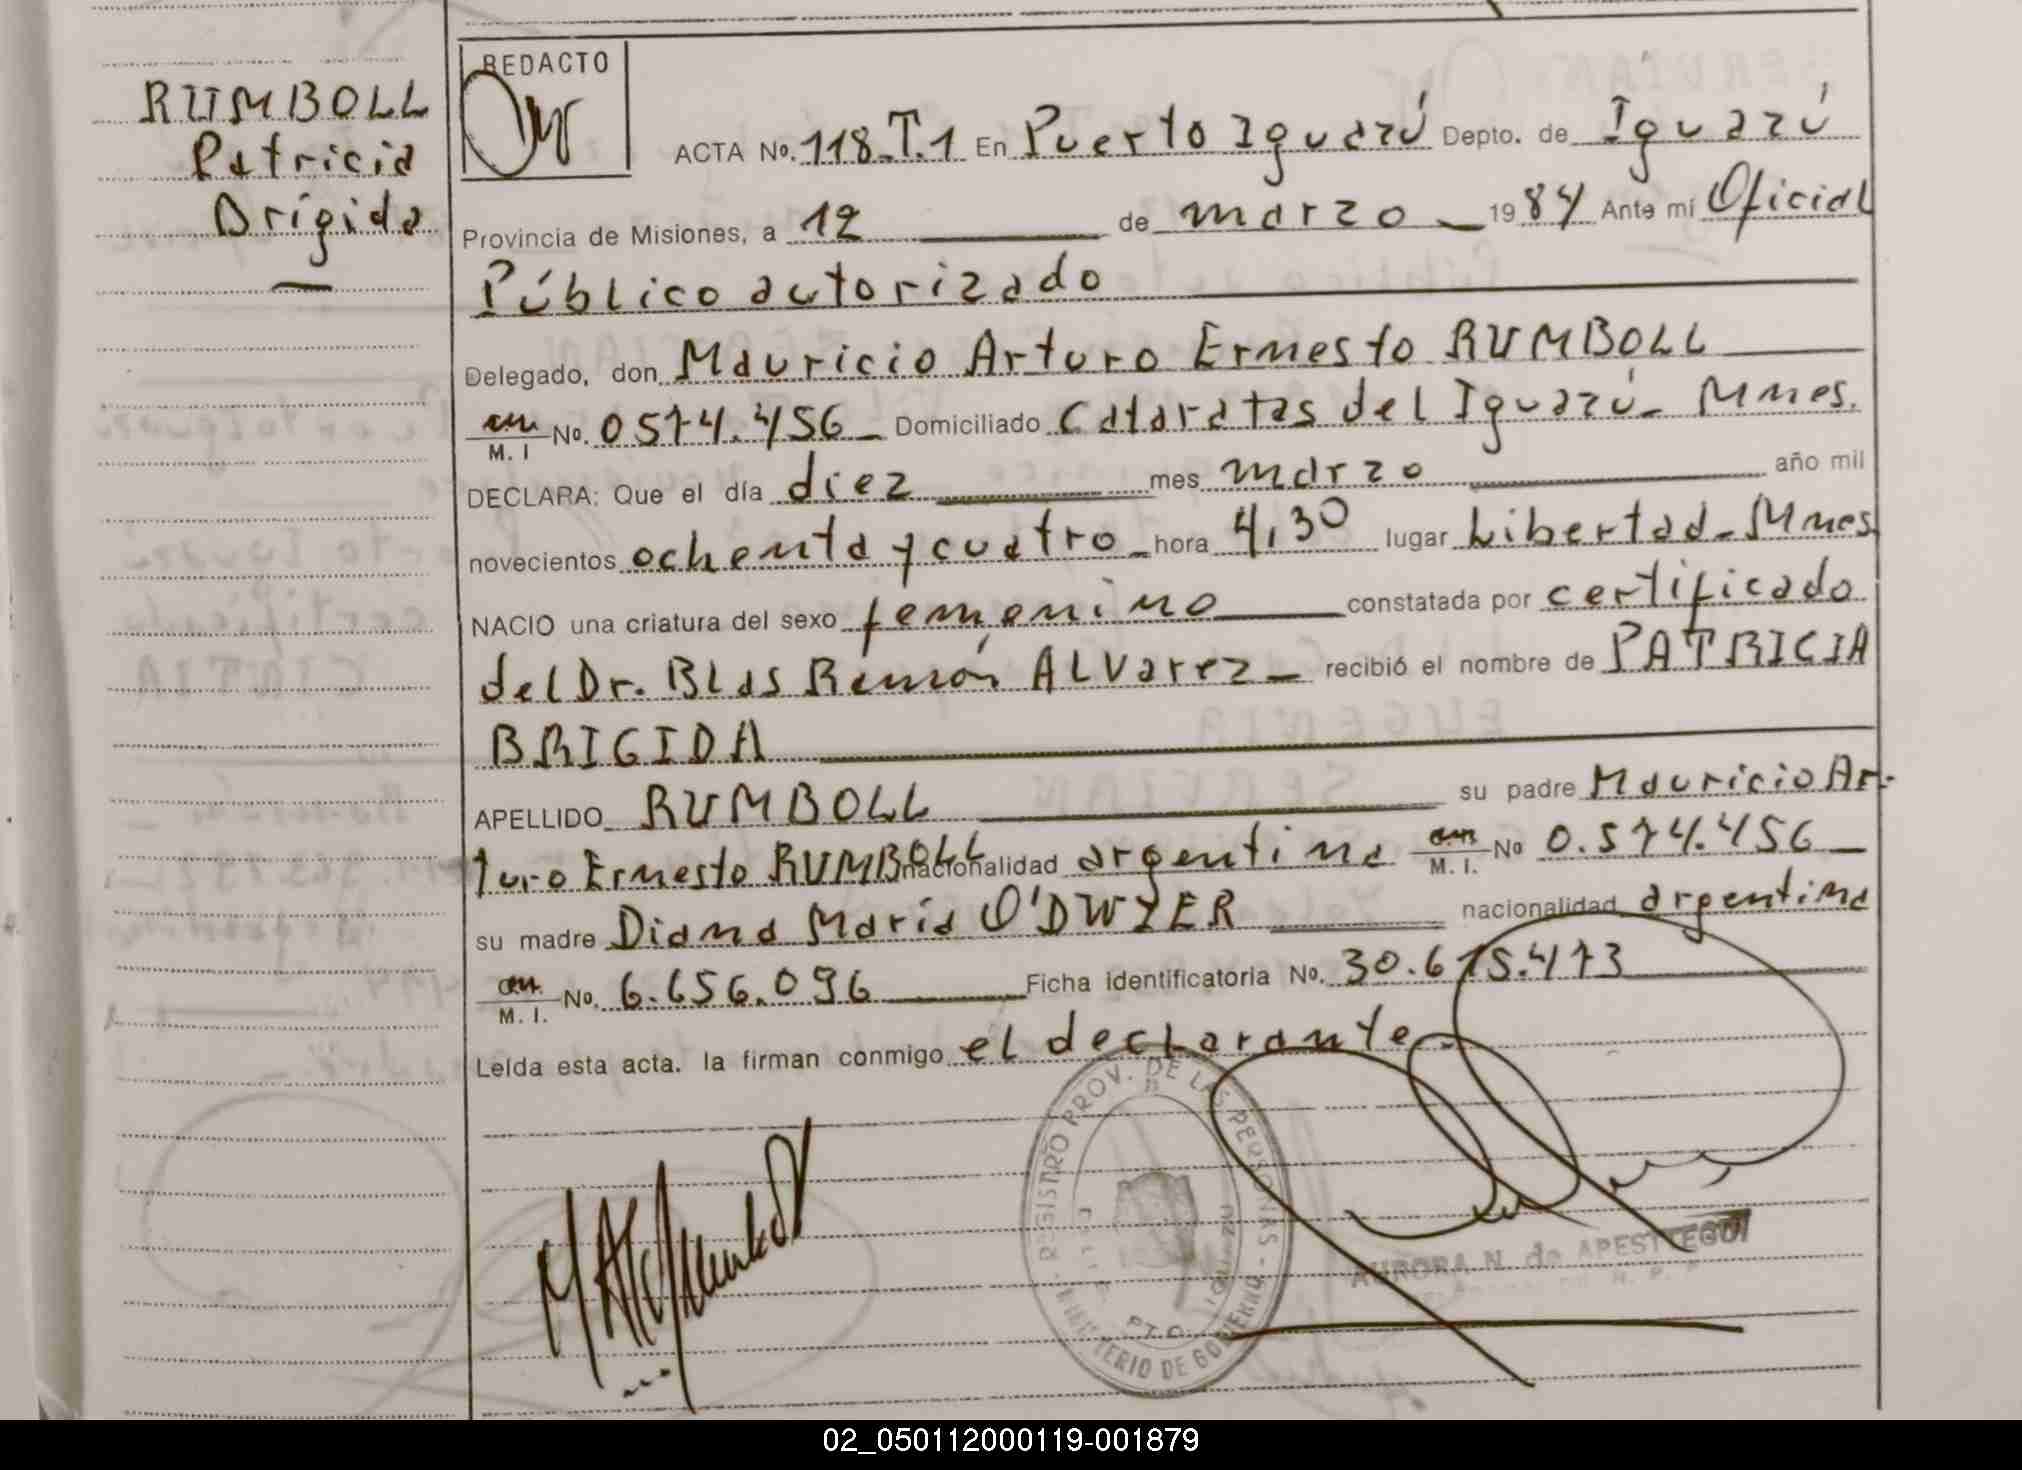 RUMBOLL
Patricia
Brígida
REDACTO
ACTA No. 118.T.1 En Puerto Iguazú Depto. de Iguazú
Provincia de Misiones, a 12 de marzo 1984 Ante mi Oficial
Público autorizado
Delegado, don Mauricio Arturo Ernesto RUMBOLL
M. I No. 0574.456 Domiciliado Cataratas del Iguazú - Mnes.
DECLARA: Que el día diez mes marzo año mil
novecientos ochenta y cuatro hora 4,30 lugar Libertad - Mnes
NACIO una criatura del sexo femenino constatada por certificado
del Dr. Blas Ramón ALVarez recibió el nombre de PATRICIA
BRIGIDA
APELLIDO RUMBOLL su padre Mauricio Ar-
turo Ernesto RUMBOLL nacionalidad argentina M. I. No 0.574.456
su madre Diana María O'DWYER nacionalidad argentina
M. I. No. 6.656.096 Ficha identificatoria No. 30.675.473
Leída esta acta. la firman conmigo el declarante
REGISTRO PROV. DE LAS PERSONAS - MINISTERIO DE GOBIERNO
PTO. IGUAZU
AURORA N. de APESTEGUI
02_050112000119-001879